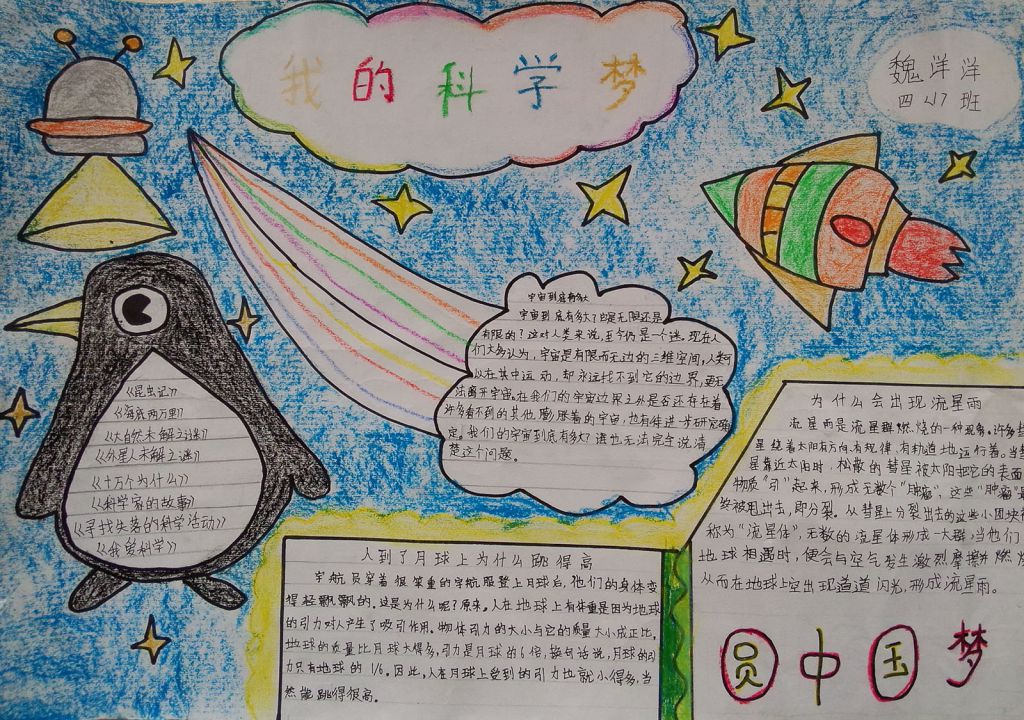 我的科学梦
魏洋洋
四〈1〉班
《昆虫记》
《海底两万里》
《大自然未解之谜》
《外星人未解之谜》
《十万个为什么》
《科学家的故事》
《寻找失落的科学活动》
《我爱科学》
宇宙到底有多大
宇宙到底有多大?即是无限还是
有限的?这对人类来说,至今仍是一个迷。现在人
们大多认为,宇宙是有限而无边的三维空间,人类可
以在其中运动,却永远找不到它的边界,更无
法离开宇宙。在我们的宇宙边界之外是否还存在着
许多看不到的其他膨胀着的宇宙,也有待进一步研究确
定。我们的宇宙到底有多大?谁也无法完全说清
楚这个问题。
人到了月球上为什么跳得高
宇航员穿着很笨重的宇航服登上月球后,他们的身体变
得轻飘飘的。这是为什么呢?原来。人在地球上有体重是因为地球
的引力对人产生了吸引作用。物体引力的大小与它的质量大小成正比,
地球的质量比月球大得多,引力是月球的6倍,换句话说,月球的引
力只有地球的1/6。因此,人在月球上受到的引力也就小得多,当
然能跳得很高。
为什么会出现流星雨
流星雨是流星群燃烧的一种现象。许多彗
星绕着太阳有方向、有规律、有轨道地运行着。当彗
星靠近太阳时,松散的彗星被太阳把它的表面
物质“引”起来,形成无数个“肿瘤”,这些“肿瘤”最
终被甩出去,即分裂。从彗星上分裂出去的这些小团块被
称为“流星体”,无数的流星体形成一大群,当他们
地球相遇时,便会与空气发生激烈摩擦并燃烧
从而在地球上空出现道道闪光,形成流星雨。
圆中国梦